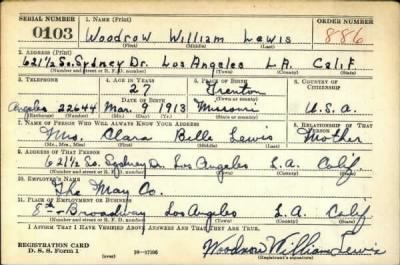 SERIAL NUMBER 1. NAME (Print) ORDER NUMBER
0103 Woodrow William Lewis 886
(First) (Middle) (Last)
2. ADDRESS (Print)
621½ So. Sydney Dr. Los Angeles L.A. Calif.
(Number and street or R. F. D. number) (Town) (County) (State)
3. TELEPHONE 4. AGE IN YEARS 5. PLACE OF BIRTH 6. COUNTRY OF CITIZENSHIP
27 Trenton
DATE OF BIRTH (Town or county)
Angeles 22644 Mar. 9 1913 Missouri U.S.A.
(Exchange) (Number) (Mo.) (Day) (Yr.) (State or country)
7. NAME OF PERSON WHO WILL ALWAYS KNOW YOUR ADDRESS 8. RELATIONSHIP OF THAT PERSON
Mrs. Clara Belle Lewis Mother
(Mr., Mrs., Miss) (First) (Middle) (Last)
9. ADDRESS OF THAT PERSON
621½ So. Sydney Dr. Los Angeles L.A. Calif.
(Number and street or R. F. D. number) (Town) (County) (State)
10. EMPLOYER'S NAME
The May Co.
11. PLACE OF EMPLOYMENT OR BUSINESS
8th - Broadway Los Angeles L.A. Calif
(Number and street or R. F. D. number) (Town) (County) (State)
I AFFIRM THAT I HAVE VERIFIED ABOVE ANSWERS AND THAT THEY ARE TRUE.
REGISTRATION CARD
D. S. S. Form 1 (over) Woodrow William Lewis
(Registrant's signature)